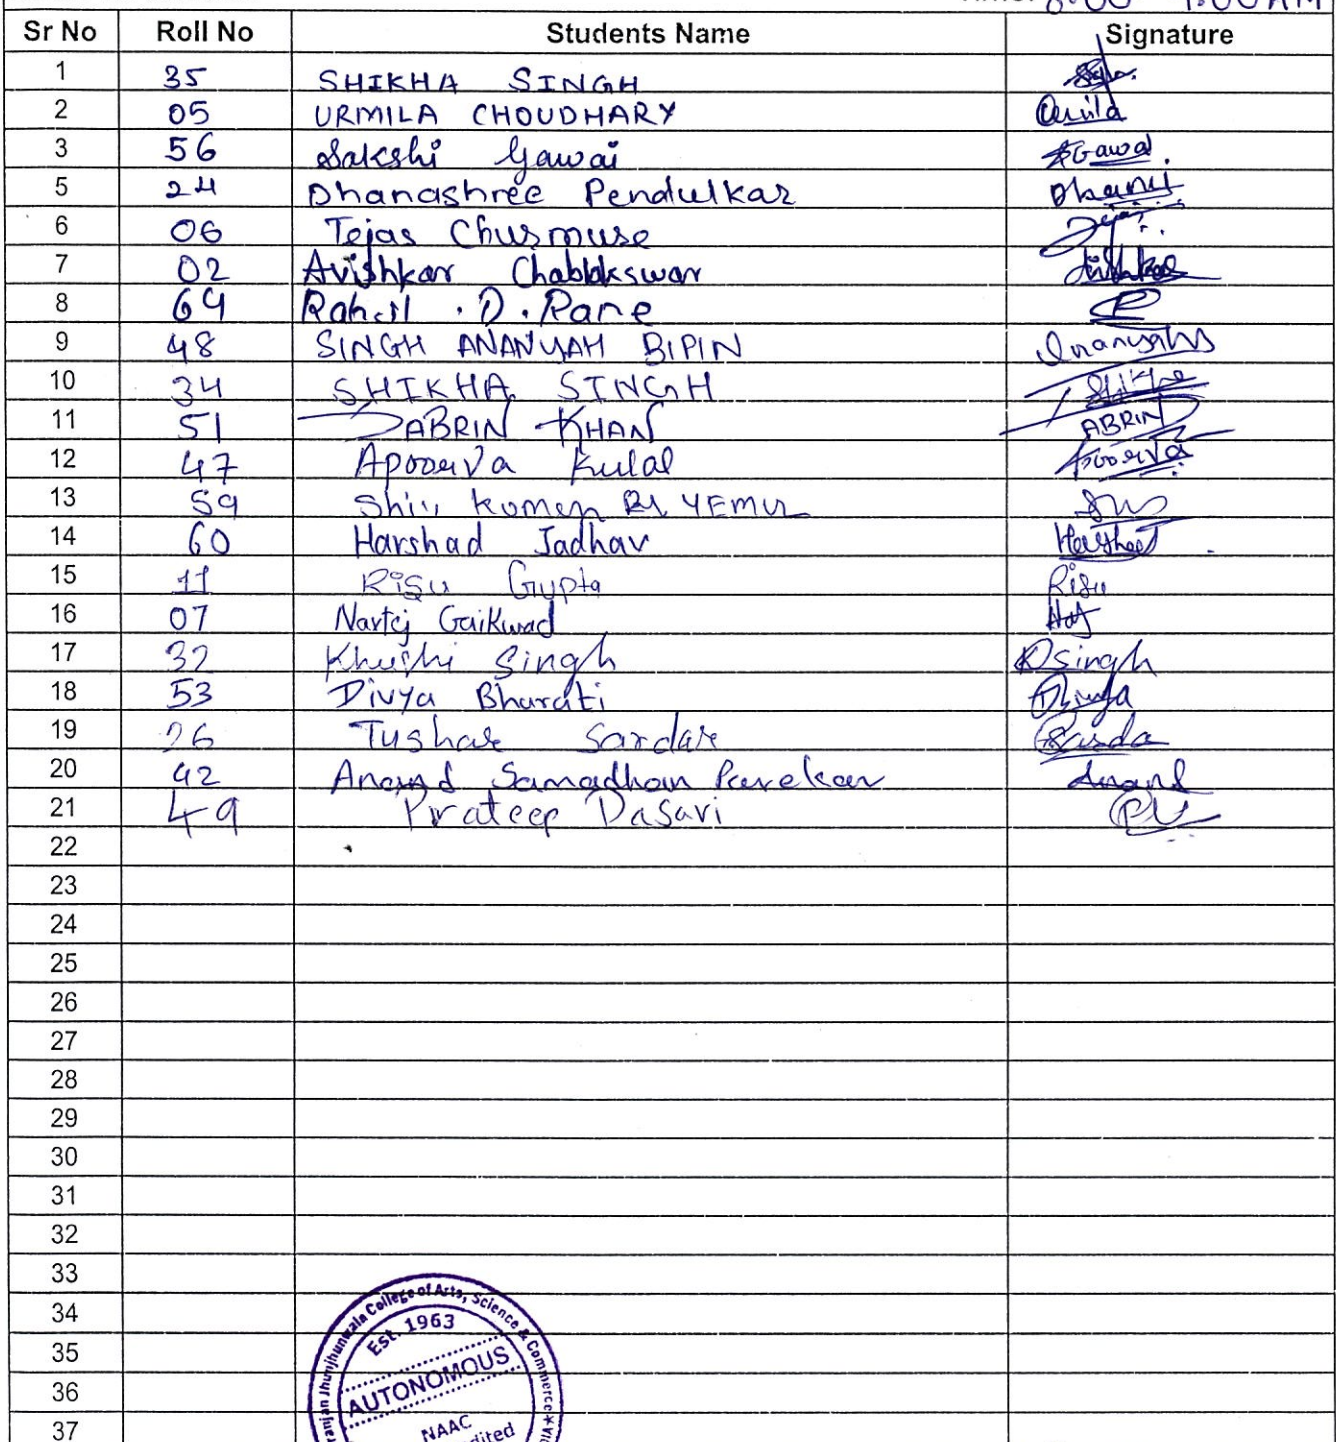 8:00 9:00 AM
Sr No Roll No Students Name Signature
1 35 SHIKHA SINGH
2 05 URMILA CHOUDHARY
3 56 Sakshi Gawai Gawai
5 24 Dhanashree Pendulkar
6 06 Tejas Chusmuse Tejas
7 02 Avishkar
8 69 D. Rane
9 48 SINGH ANANYAH BIPIN
10 34 SHIKHA SINGH
11 51 SABRIN KHAN SABRIN
12 47 Apoorva Kulal Apoorva
13 59 YEMUL
14 60 Harshad Jadhav Harshad
15 11 Risu Gupta Risu
16 07 Gaikwad
17 32 Khushi Singh KSingh
18 53 Divya Bharati Divya
19 26 Tushar Sardar
20 42 Anand Samadhan Anand
21 49 Prateep Dasari
22
23
24
25
26
27
28
29
30
31
32
33
34
35
36
37
anjan Jhunjhunwala College of Arts, Science & Commerce
Est. 1963
AUTONOMOUS
NAAC